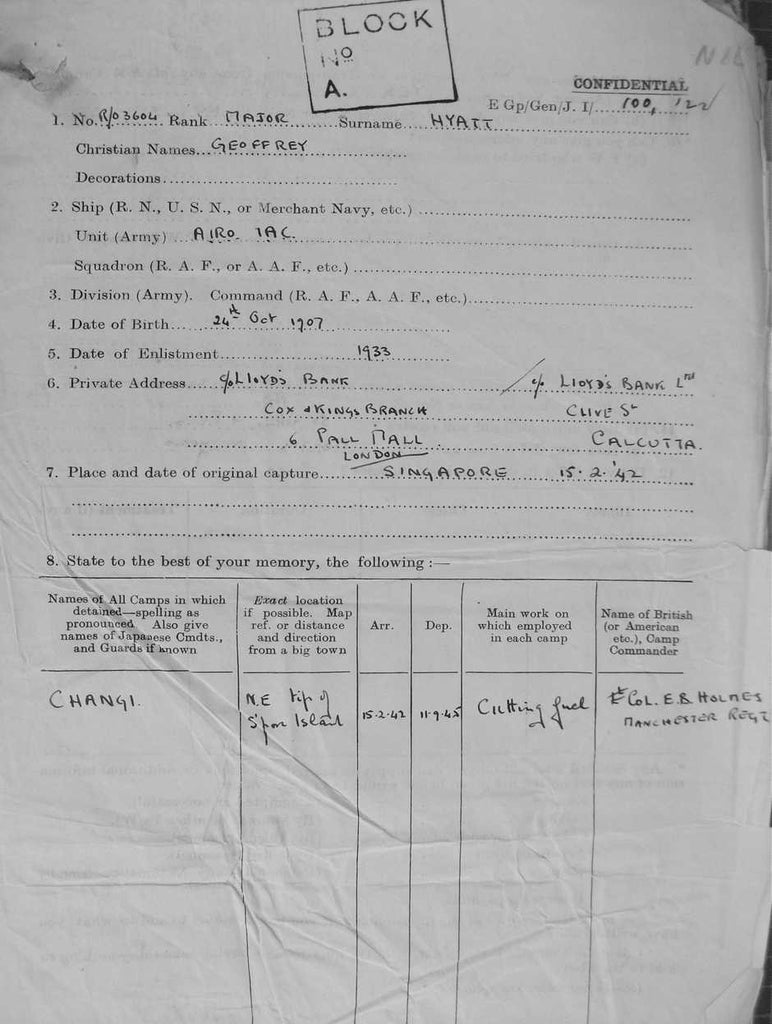 BLOCK
No
A.
CONFIDENTIAL
E Gp/Gen/J. I/.....100, '22/
1. No. R/03604. Rank...MAJOR..........Surname.....HYATT
Christian Names...GEOFFREY
Decorations
2. Ship (R. N., U. S. N., or Merchant Navy, etc.)
Unit (Army) ...AIRO. IAC.
Squadron (R. A. F., or A. A. F., etc.)
3. Division (Army). Command (R. A. F., A. A. F., etc.)
4. Date of Birth......24th Oct 1907
5. Date of Enlistment......1933
6. Private Address......c/o LLOYD'S BANK c/o LLOYD'S BANK Ltd
COX & KINGS BRANCH CLIVE St
6 PALL MALL CALCUTTA.
LONDON
7. Place and date of original capture......SINGAPORE 15.2.'42
8. State to the best of your memory, the following :—
Names of All Camps in which detained—spelling as pronounced. Also give names of Japanese Cmdts., and Guards if known
Exact location if possible. Map ref. or distance and direction from a big town
Arr.
Dep.
Main work on which employed in each camp
Name of British (or American etc.), Camp Commander
CHANGI.
N.E tip of
S'pore Island
15.2.42
11.9.45
Cutting fuel
Lt COL. E.B. HOLMES
MANCHESTER REGT